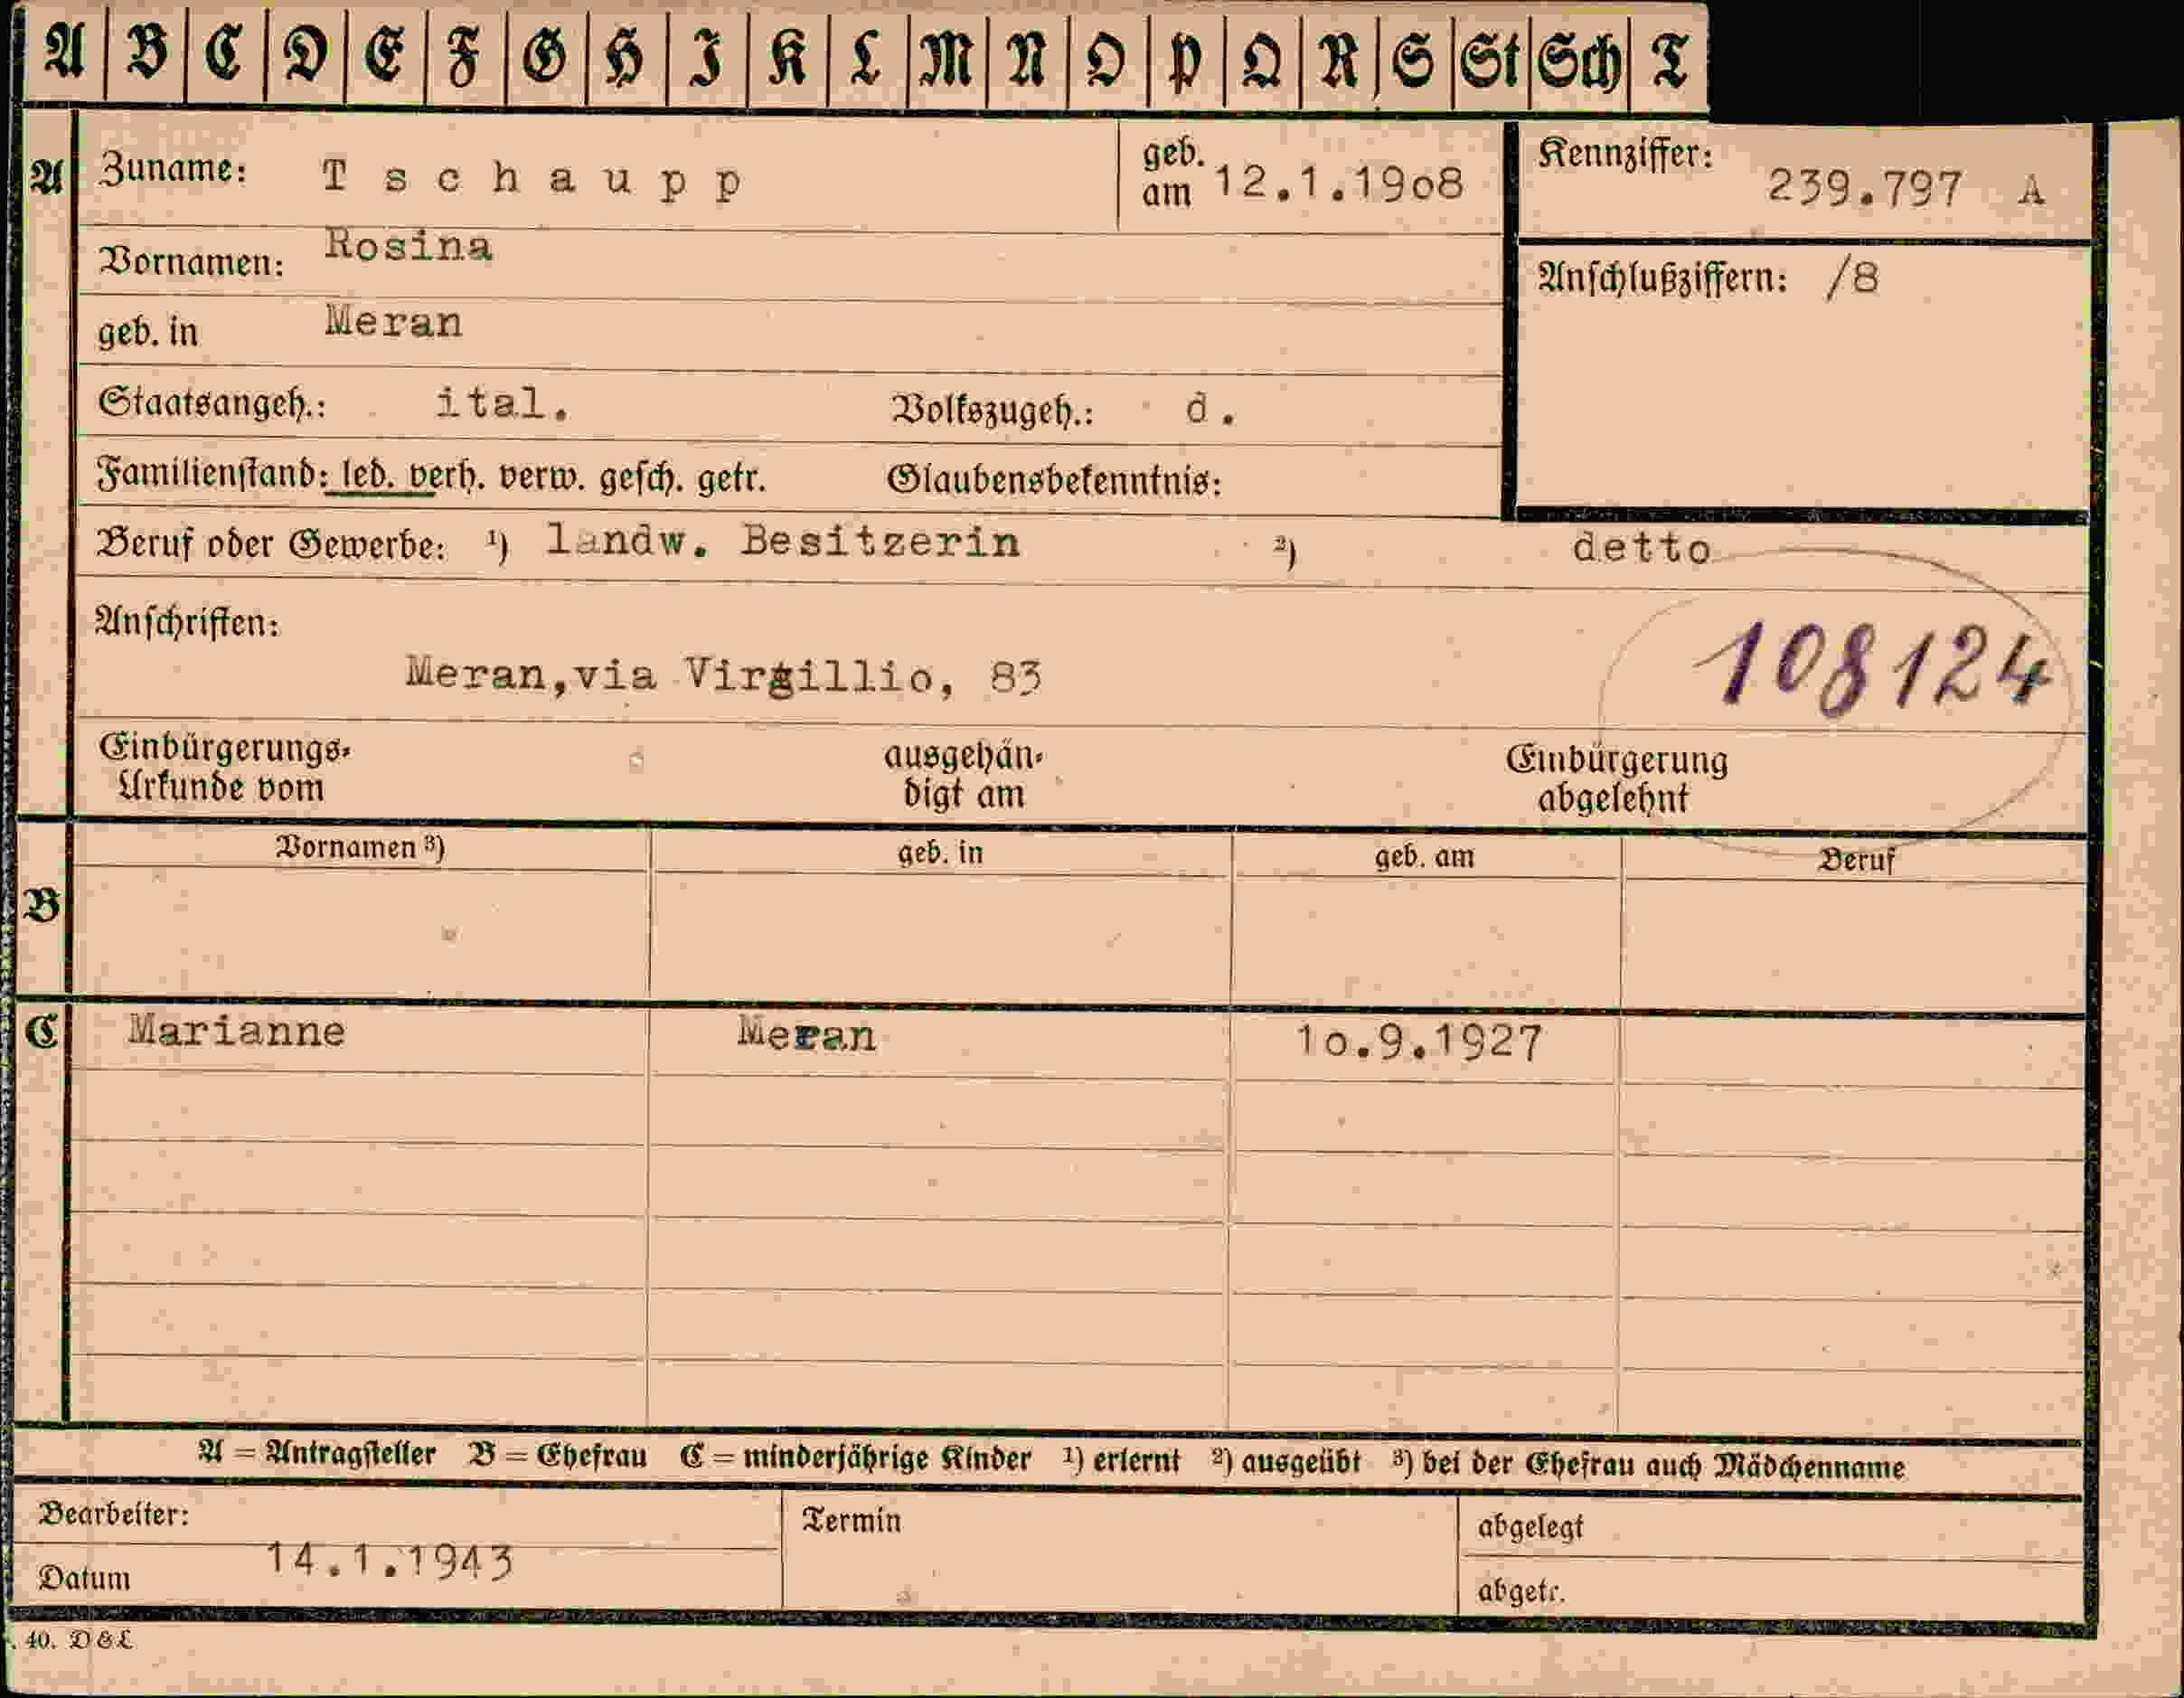 A B C D E F G H I K L M N O P Q R S St Sch T
A
Zuname: Tschaupp geb. am 12.1.19o8 Kennziffer: 239.797 A
Vornamen: Rosina
Anschlußziffern: /8
geb. in Meran
Staatsangeh.: ital. Volkszugeh.: d.
Familienstand: led. verh. verw. gesch. getr. Glaubensbekenntnis:
Beruf oder Gewerbe: ¹) landw. Besitzerin ²) detto
Anschriften:
108124
Meran,via Virgillio, 83
Einbürgerungs- ausgehän- Einbürgerung
Urkunde vom digt am abgelehnt
Vornamen ³) geb. in geb. am Beruf
B
C Marianne Meran 1o.9.1927
A = Antragsteller B = Ehefrau C = minderjährige Kinder ¹) erlernt ²) ausgeübt ³) bei der Ehefrau auch Mädchenname
Bearbeiter: Termin abgelegt
Datum 14.1.1943 abgetr.
. 40. D & L